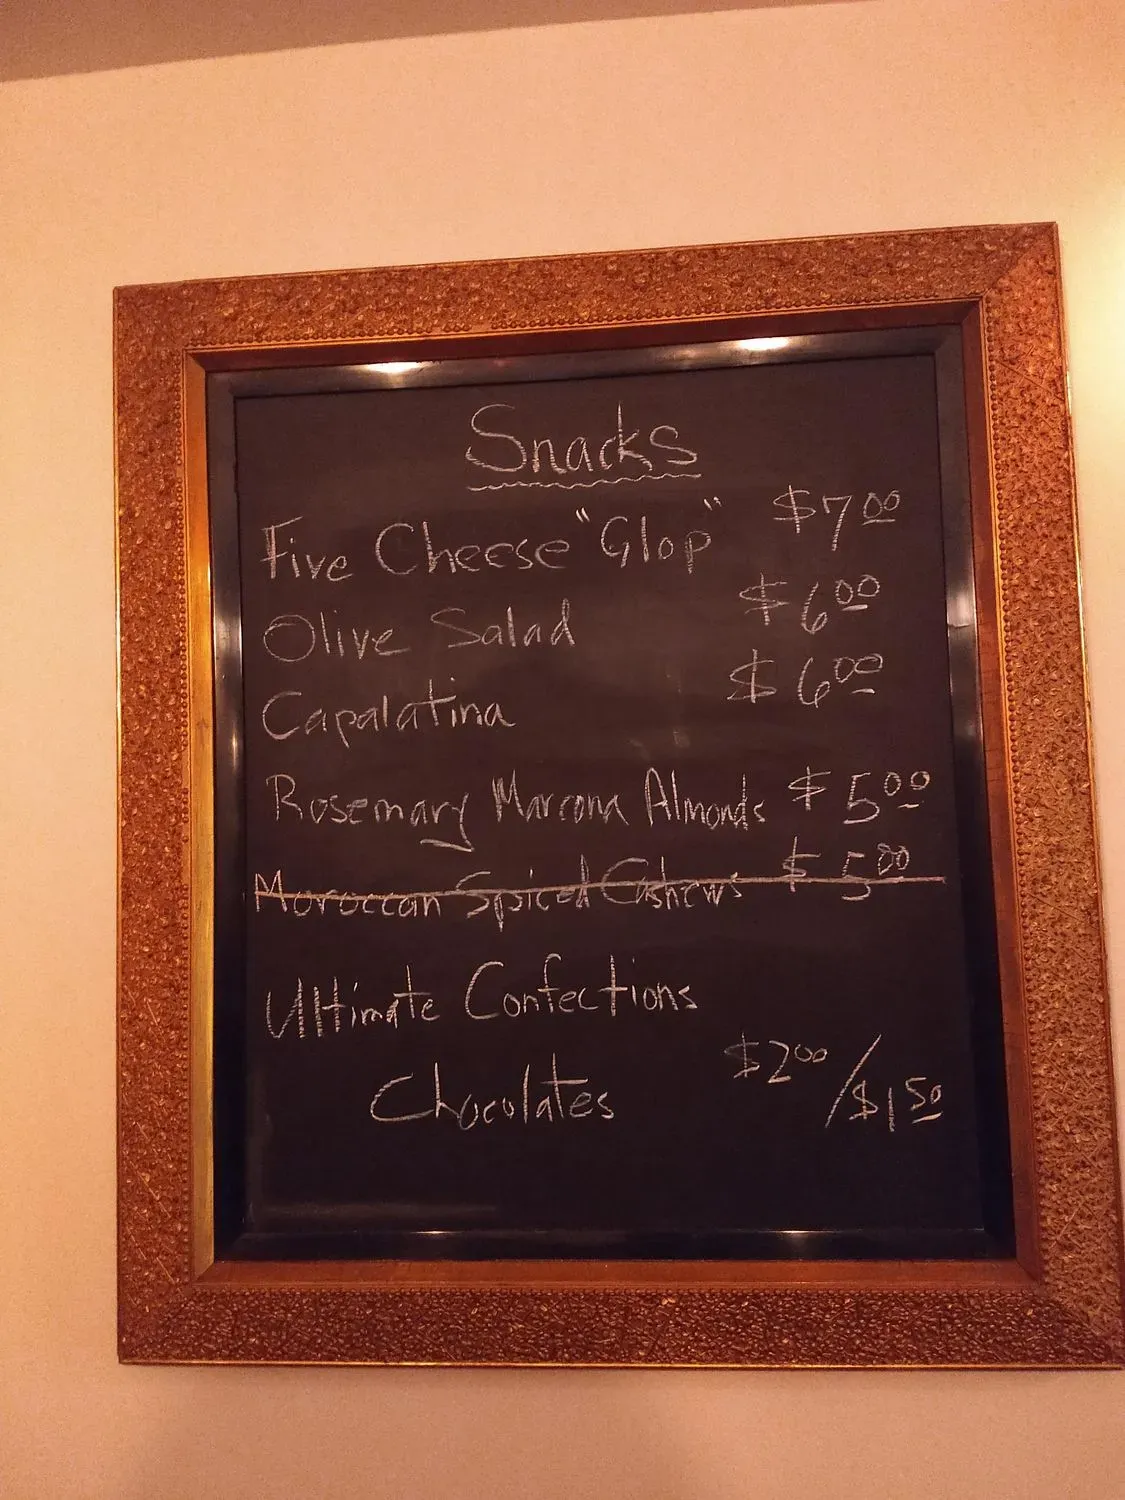 Snacks
Five Cheese "Glop" $7.00
Olive Salad $6.00
Capalatina $6.00
Rosemary Marcona Almonds $5.00
Moroccan Spiced Cashews $5.00
Ultimate Confections
Chocolates $2.00/$1.50